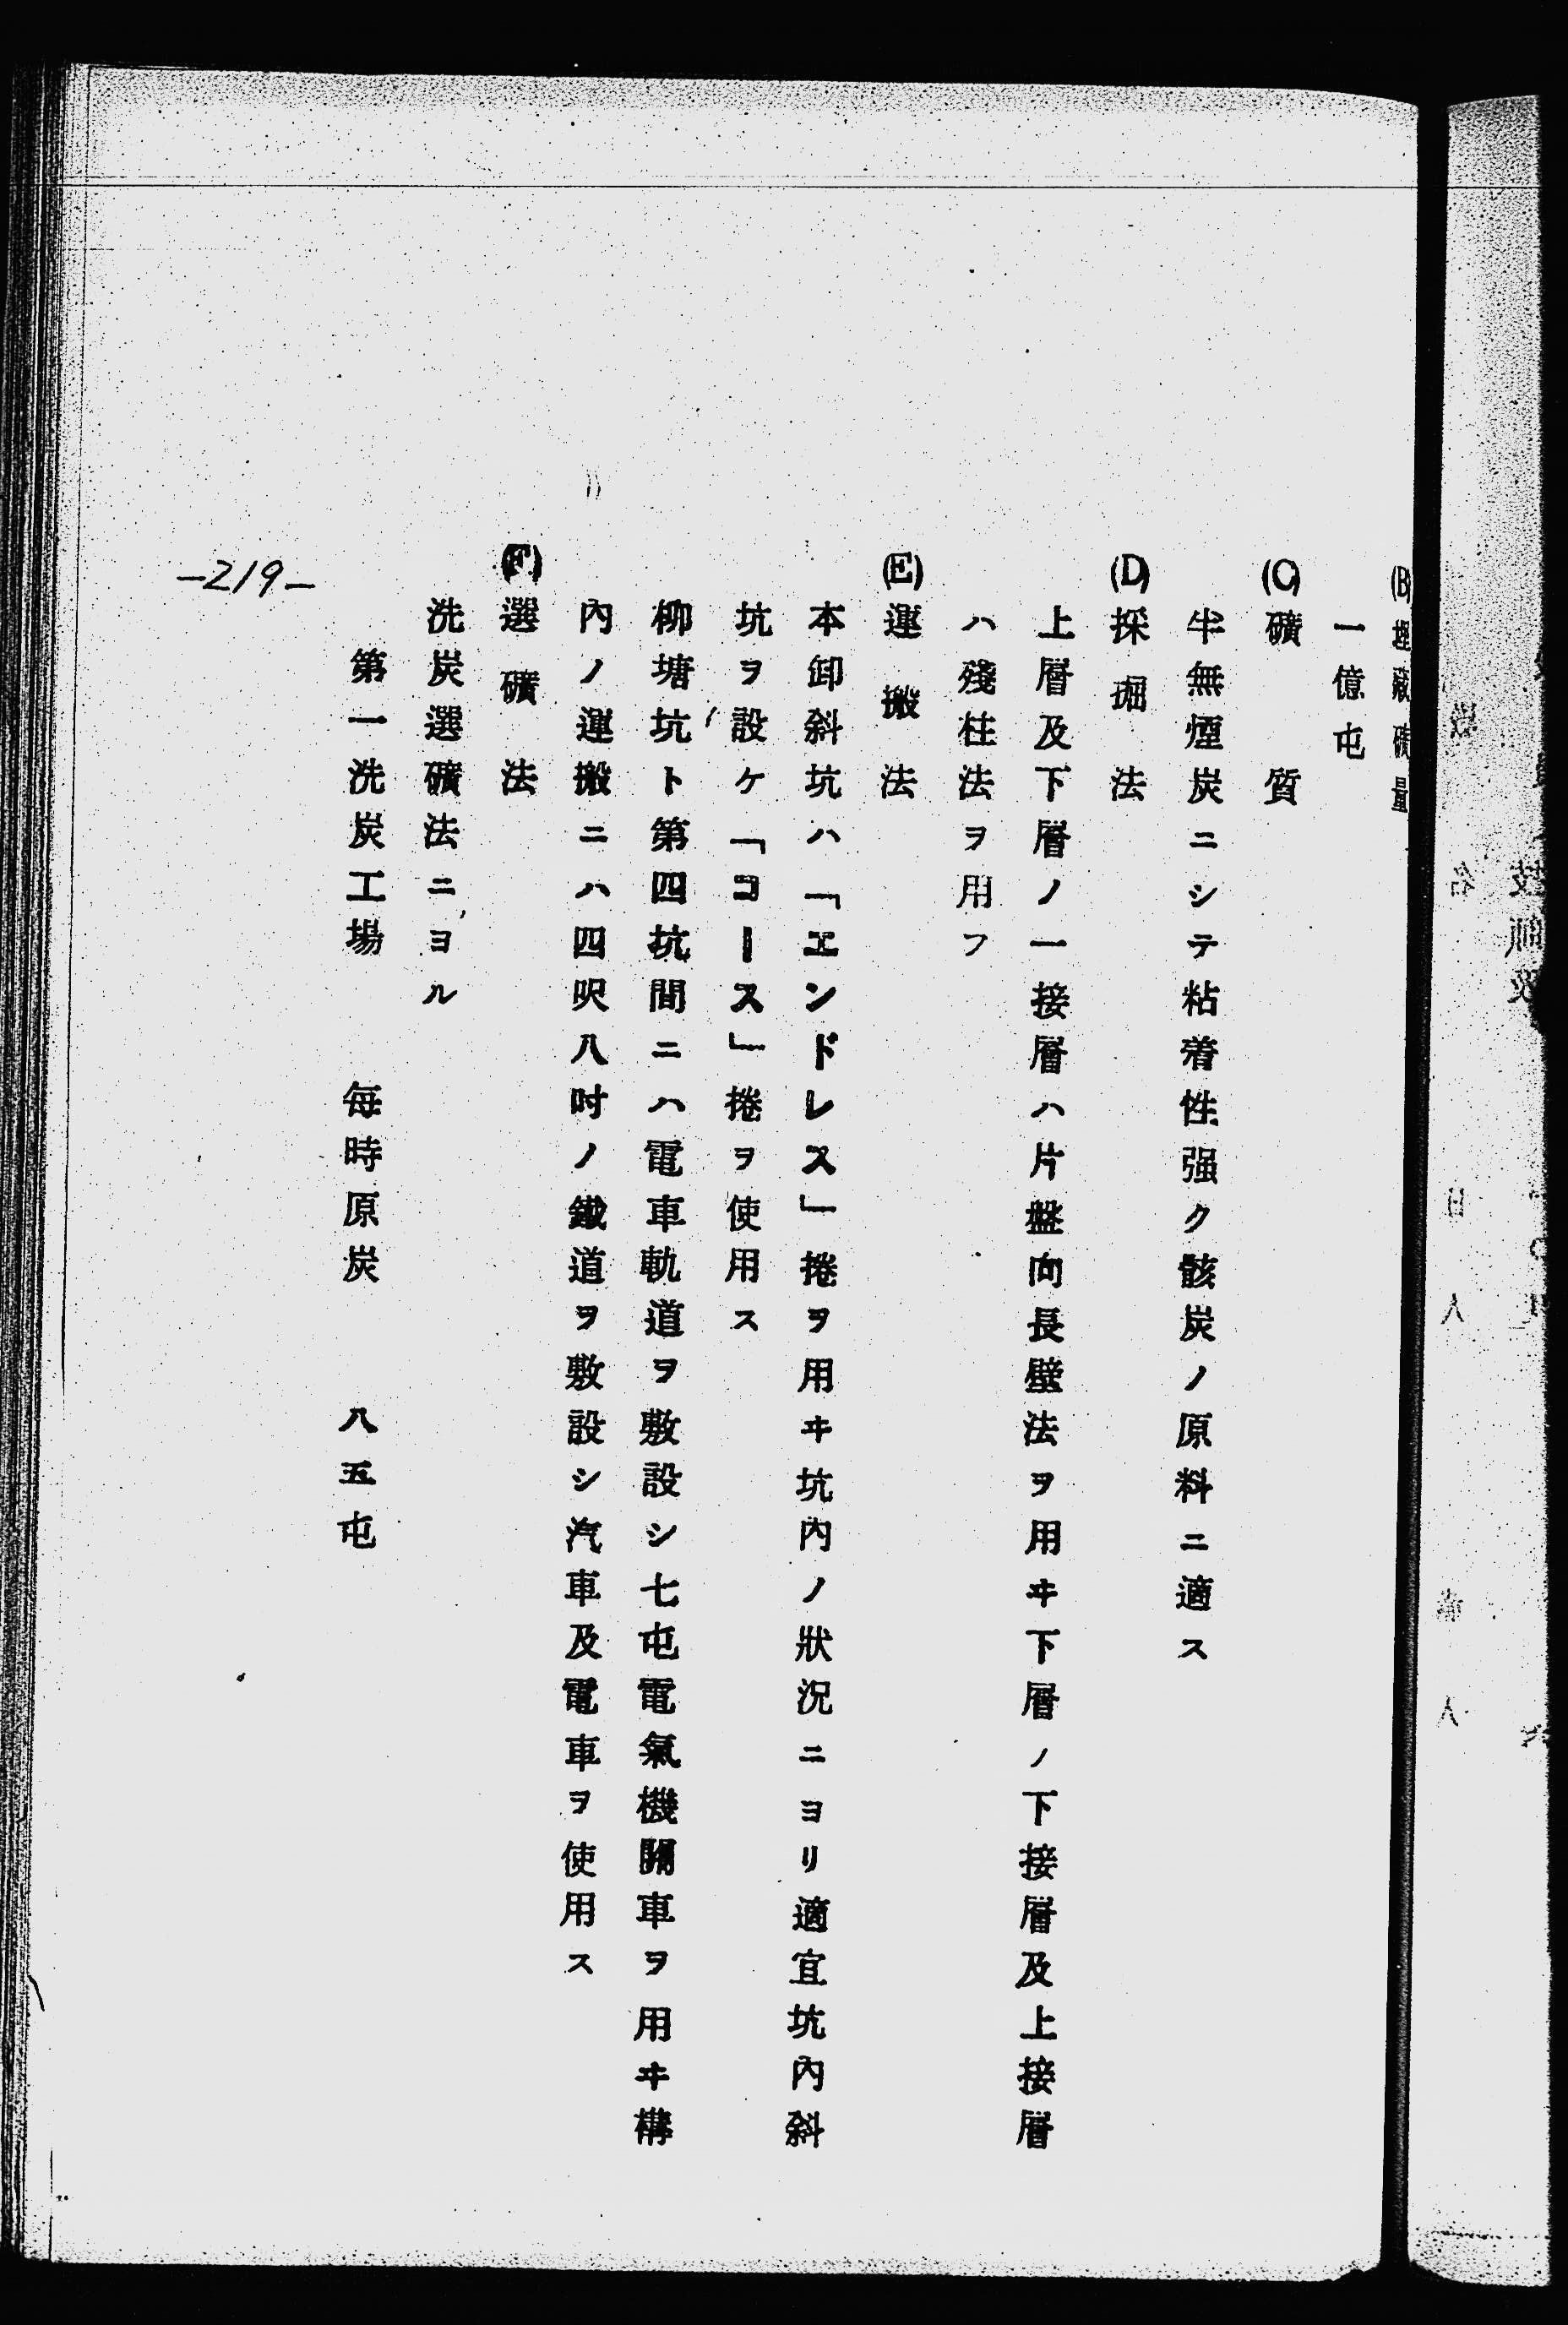 (B)埋藏礦量
一億屯
(C)礦質
半無煙炭ニシテ粘着性强ク骸炭ノ原料ニ適ス
(D)採掘法
上層及下層ノ一接層ハ片盤向長壁法ヲ用ヰ下層ノ下接層及上接層
ハ殘柱法ヲ用フ
(E)運搬法
本卸斜坑ハ「エンドレス」捲ヲ用ヰ坑內ノ狀况ニヨリ適宜坑內斜
坑ヲ設ケ「コース」捲ヲ使用ス
柳塘坑ト第四坑間ニハ電車軌道ヲ敷設シ七屯電氣機關車ヲ用ヰ構
內ノ運搬ニハ四呎八吋ノ鐵道ヲ敷設シ汽車及電車ヲ使用ス
(F)選礦法
洗炭選礦法ニヨル
第一洗炭工場 每時原炭 八五屯
-219-